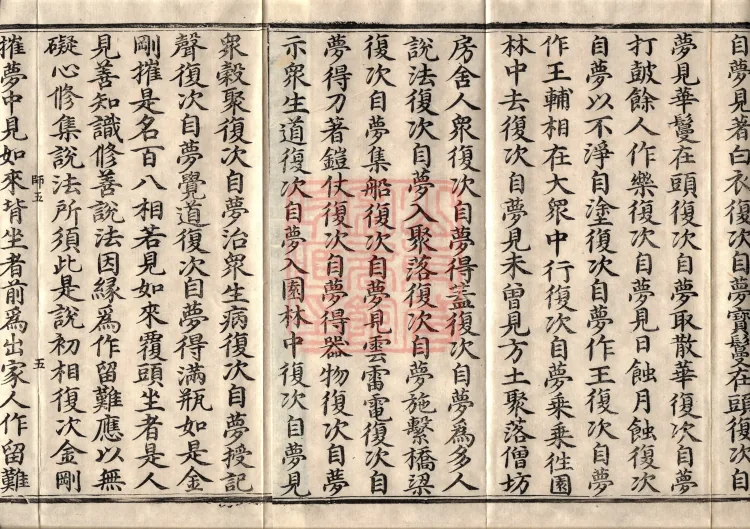 自夢見著白衣復次自夢寶鬘在頭復次自
夢見華鬘在頭復次自夢取散華復次自夢
打鼓餘人作樂復次自夢見日蝕月蝕復次
自夢以不淨自塗復次自夢作王復次自夢
作王輔相在大衆中行復次自夢乘乘徃園
林中去復次自夢見未曾見方土聚落僧坊
房舍人衆復次自夢得蓋復次自夢為多人
說法復次自夢入聚落復次自夢施繫橋梁
復次自夢集船復次自夢見雲雷電復次自
夢得刀著鎧仗復次自夢得器物復次自夢
示衆生道復次自夢入園林中復次自夢見
衆穀聚復次自夢治衆生病復次自夢授記
聲復次自夢覺道復次自夢得滿瓶如是金
剛摧是名百八相若見如來覆頭坐者是人
見善知識修善說法因緣為作留難應以無
礙心修集說法所須此是說初相復次金剛
師五
五
摧夢中見如來背坐者前為出家人作留難